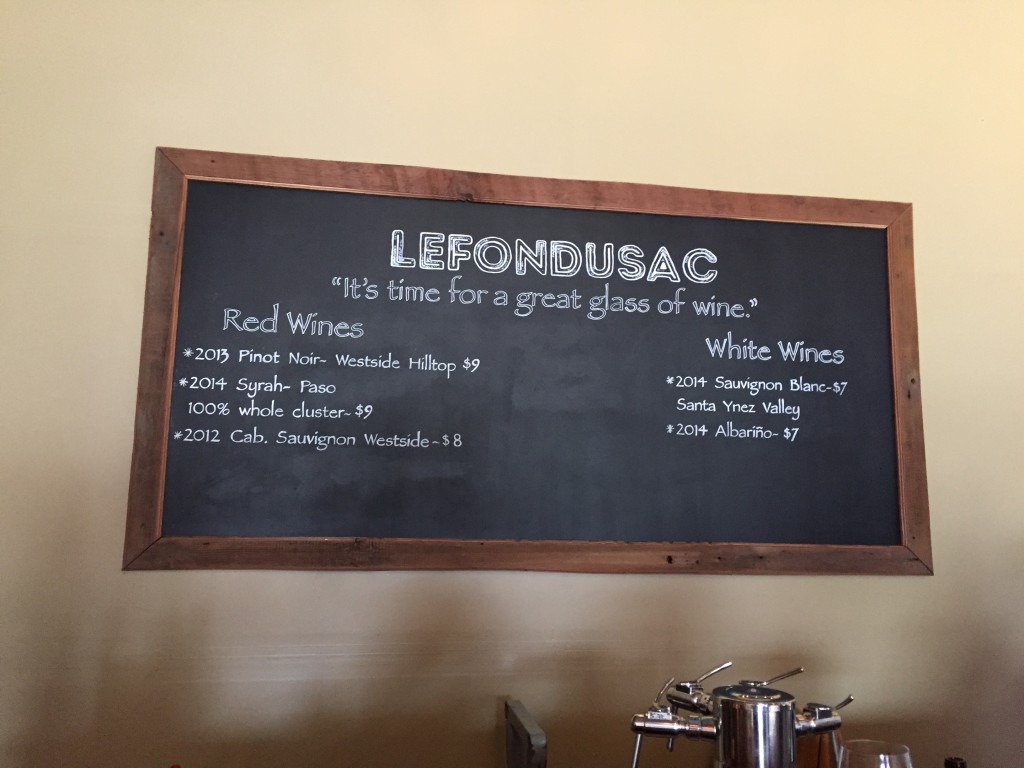 LEFONDUSAC
"It's time for a great glass of wine."
Red Wines
*2013 Pinot Noir- Westside Hilltop $9
*2014 Syrah- Paso
100% whole cluster- $9
*2012 Cab. Sauvignon Westside- $8
White Wines
*2014 Sauvignon Blanc-$7
Santa Ynez Valley
*2014 Albariño- $7